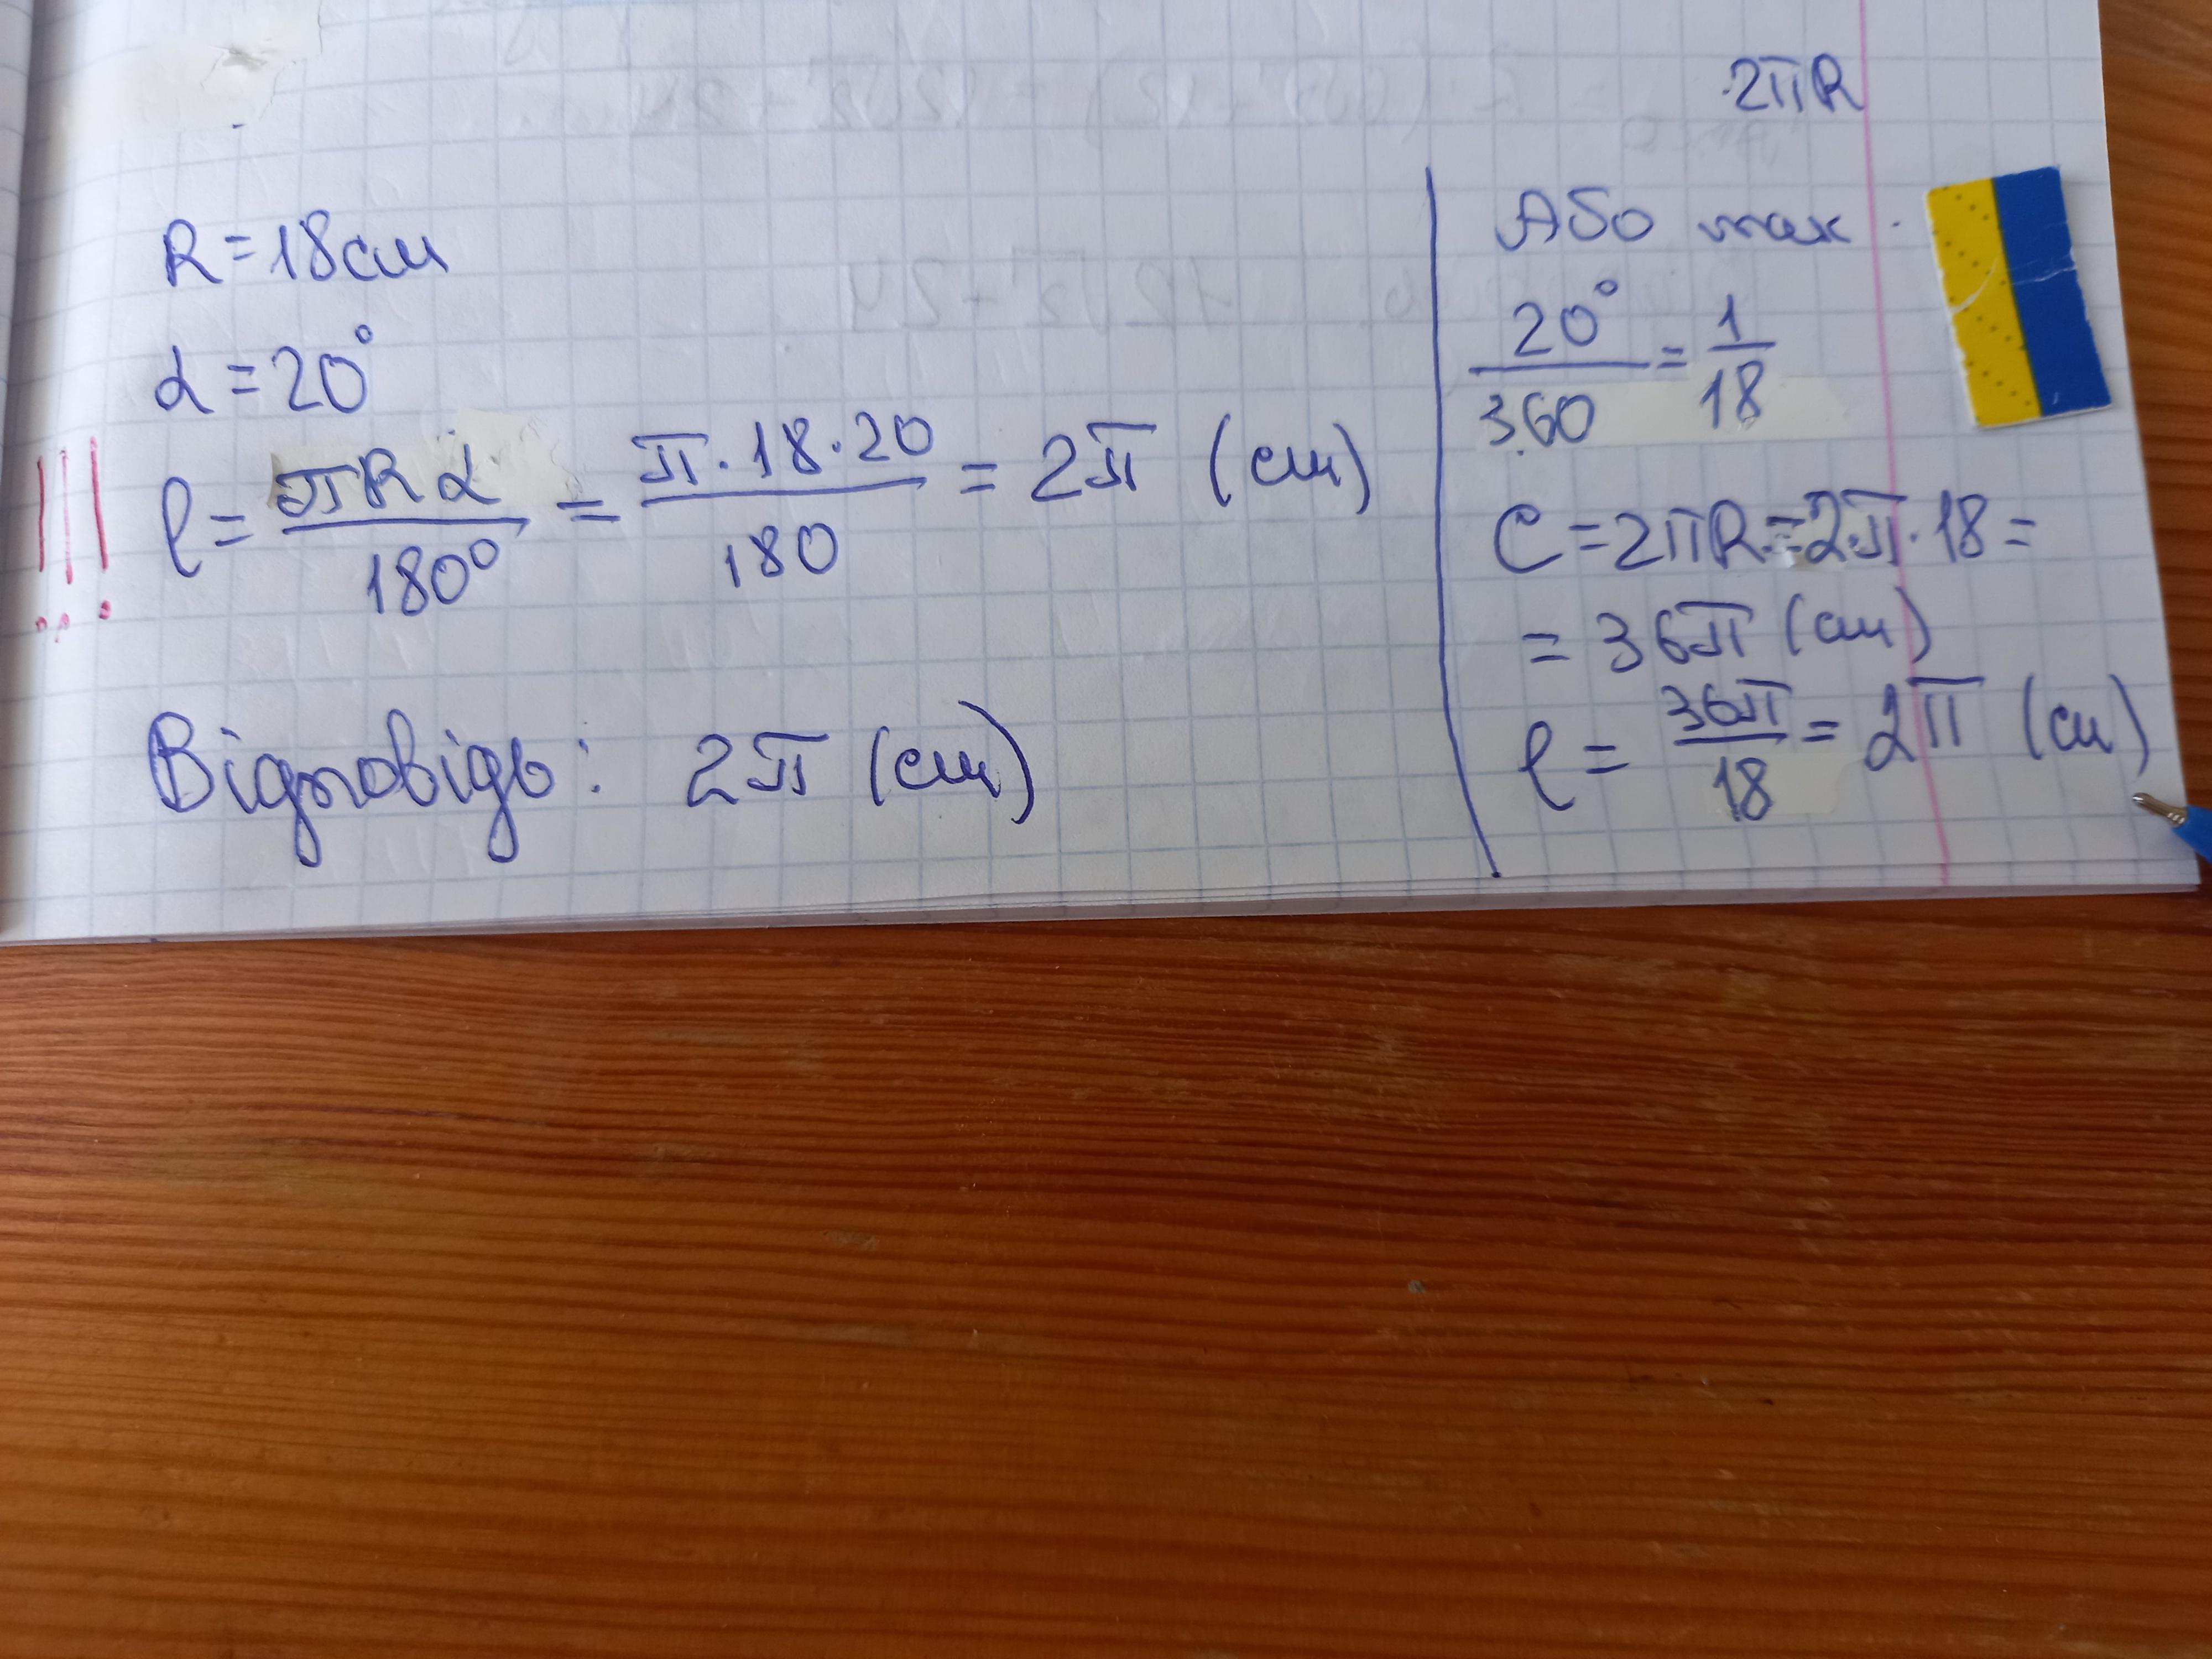 2πR
R = 18см
α = 20°
!!! ℓ = πRα / 180° = π · 18 · 20 / 180 = 2π (см)
Відповідь: 2π (см)
Або так.
20° / 360 = 1 / 18
C = 2πR = 2π · 18 =
= 36π (см)
ℓ = 36π / 18 = 2π (см)